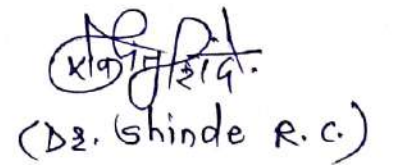 शिंदे.
(Dr. Shinde R. C.)